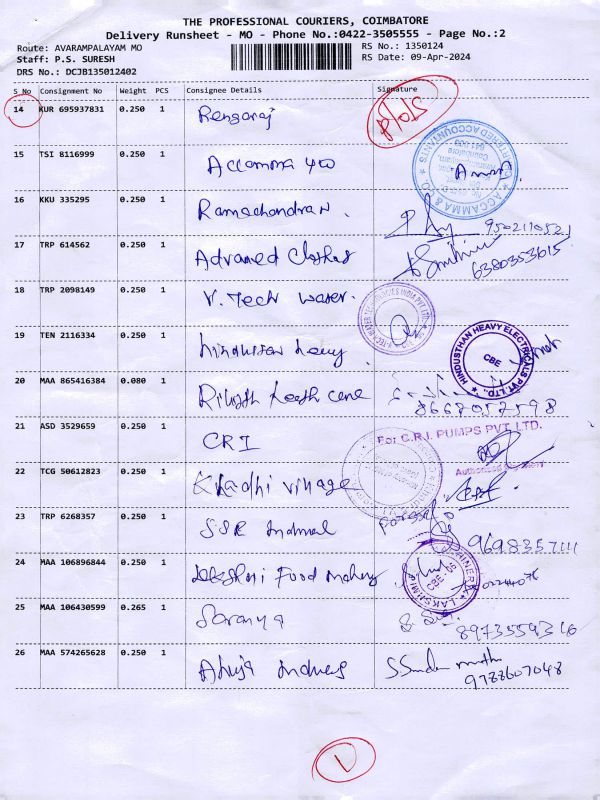 THE PROFESSIONAL COURIERS, COIMBATORE
Delivery Runsheet - MO - Phone No.:0422-3505555 - Page No.:2
Route: AVARAMPALAYAM MO
RS No.: 1350124
Staff: P.S. SURESH
RS Date: 09-Apr-2024
DRS No.: DCJB135012402
S No Consignment No Weight PCS Consignee Details Signature
14 KUR 695937831 0.250 1 Rengaraj
15 TSI 8116999 0.250 1 Accamma
ACCAMMA & CO.
CHARTERED ACCOUNTANTS
16 KKU 335295 0.250 1 Ramachandran.
9502110521
17 TRP 614562 0.250 1 Advanced Clothing
6380353615
18 TRP 2098149 0.250 1 V. Tech water.
19 TEN 2116334 0.250 1 hindustan heavy
HINDUSTHAN HEAVY ELECTRICALS PVT. LTD.,
CBE
20 MAA 865416384 0.080 1 care
8668057598
21 ASD 3529659 0.250 1 CRI
For C.R.I. PUMPS PVT LTD.
Authorised Signatory
22 TCG 50612823 0.250 1 Khadhi village
23 TRP 6268357 0.250 1 SSR
9698357111
24 MAA 106896844 0.250 1 Food
LAKSHMI
25 MAA 106430599 0.265 1 Saranya
8973559316
26 MAA 574265628 0.250 1 Ahuja
9788607048
1